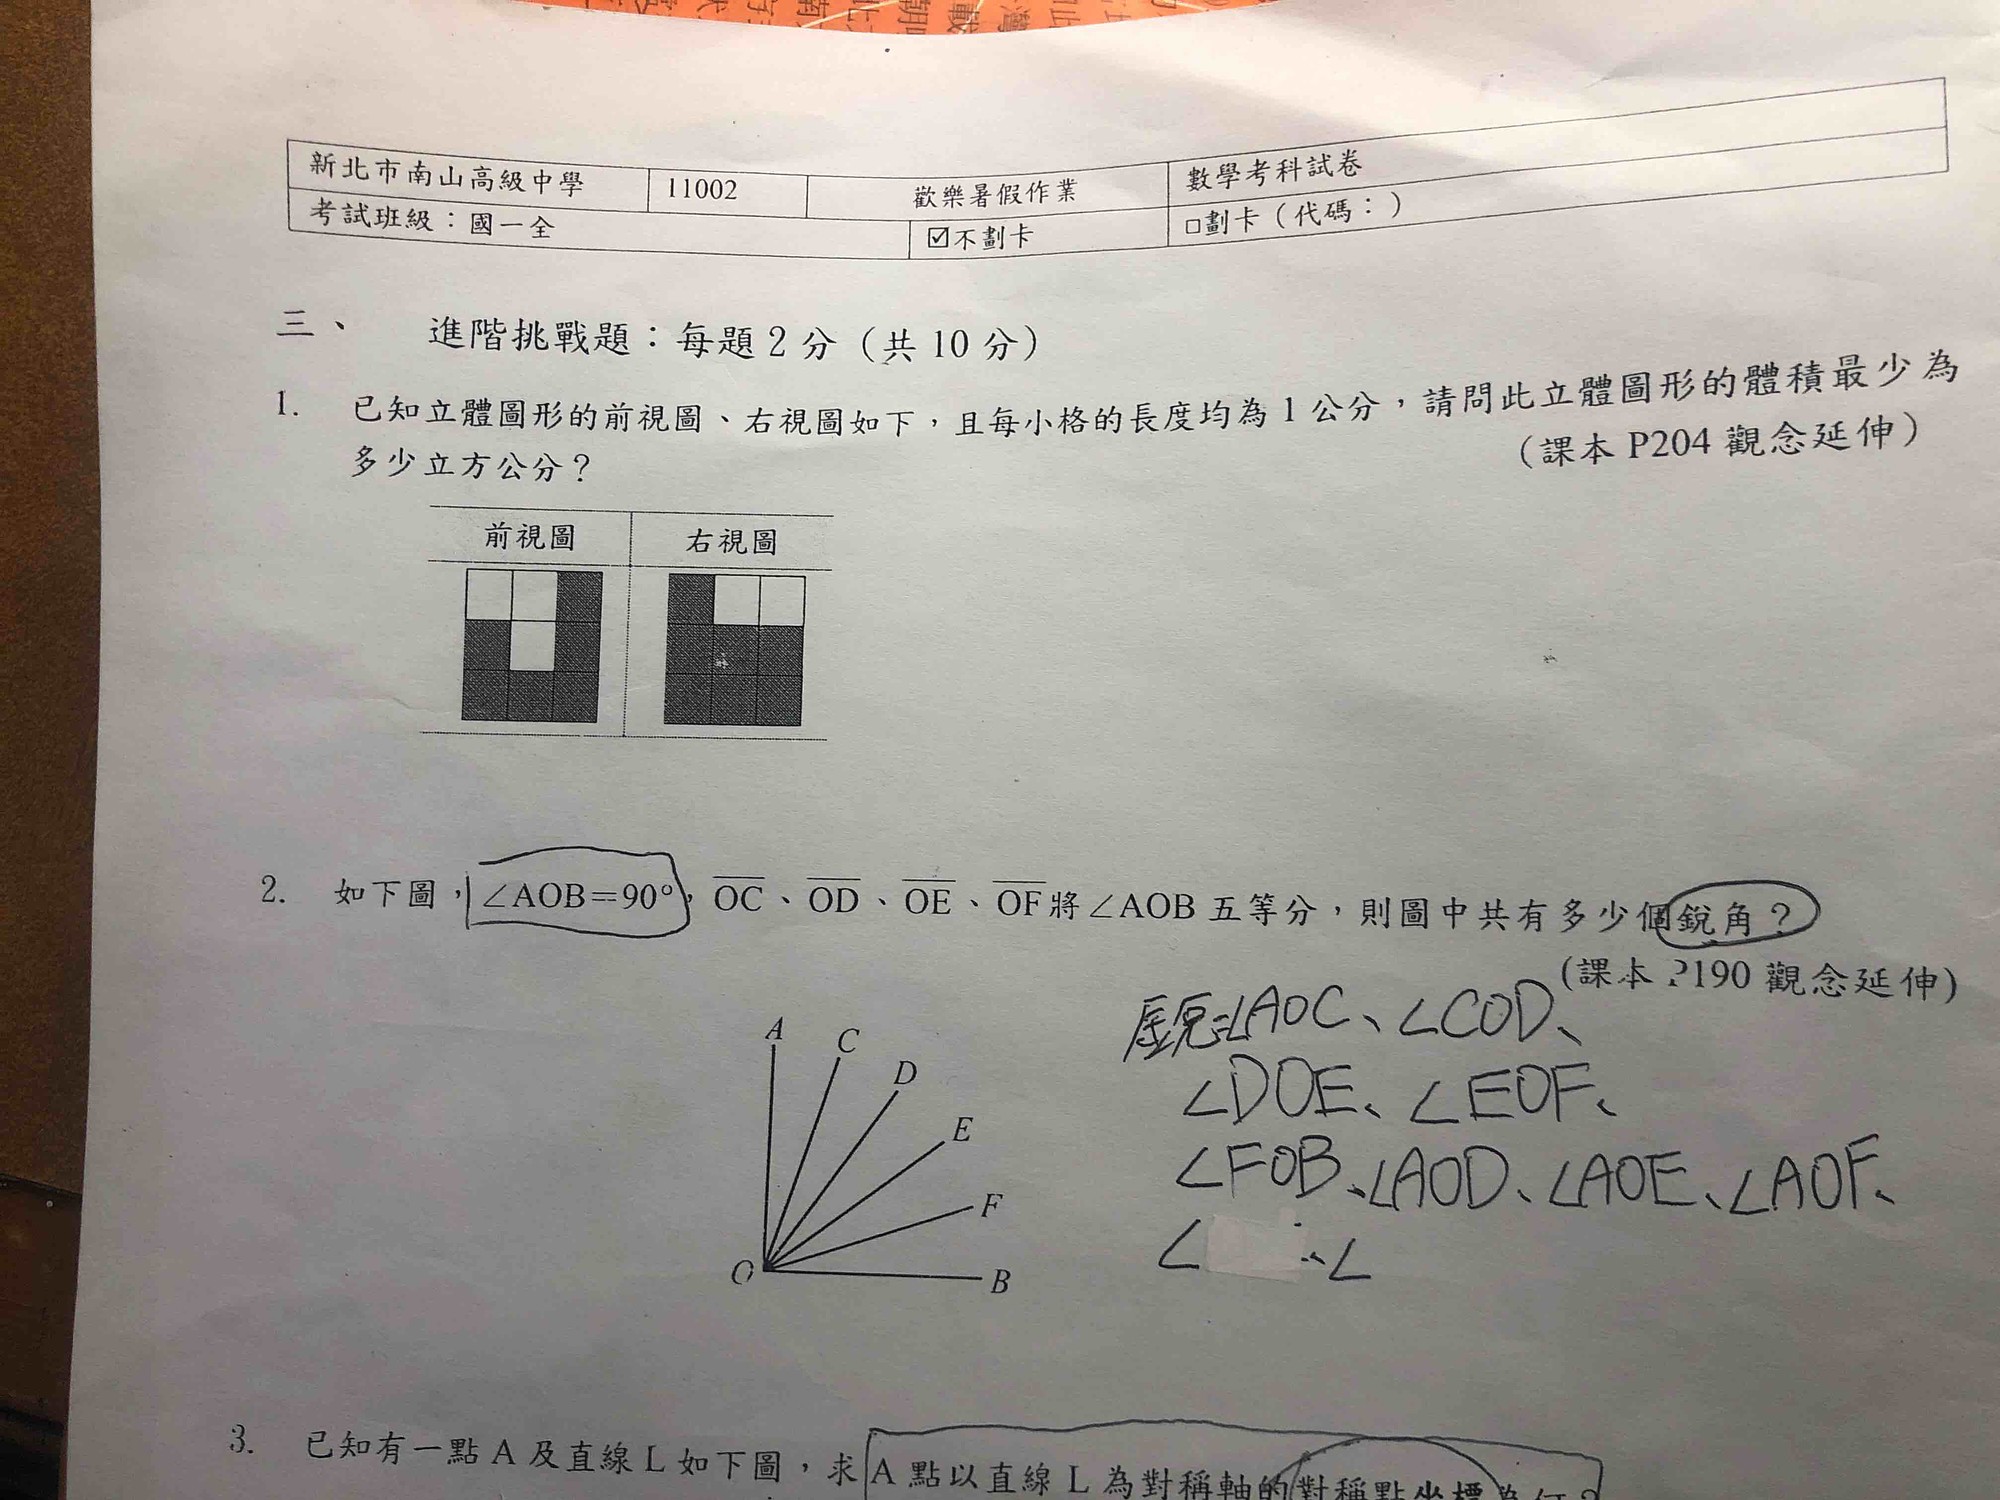 新北市南山高級中學 11002 歡樂暑假作業 數學考科試卷
考試班級：國一全 ☑不劃卡 □劃卡（代碼：）
三、 進階挑戰題：每題2分（共10分）
1. 已知立體圖形的前視圖、右視圖如下，且每小格的長度均為1公分，請問此立體圖形的體積最少為
多少立方公分？ （課本 P204 觀念延伸）
前視圖 右視圖
2. 如下圖，∠AOB=90°，OC、OD、OE、OF將∠AOB五等分，則圖中共有多少個銳角？
(課本 P190 觀念延伸)
∠AOC、∠COD、
∠DOE、∠EOF、
∠FOB、∠AOD、∠AOE、∠AOF、
∠ 、∠
A
C
D
E
F
O
B
3. 已知有一點A及直線L如下圖，求A點以直線L為對稱軸的對稱點坐標為何？